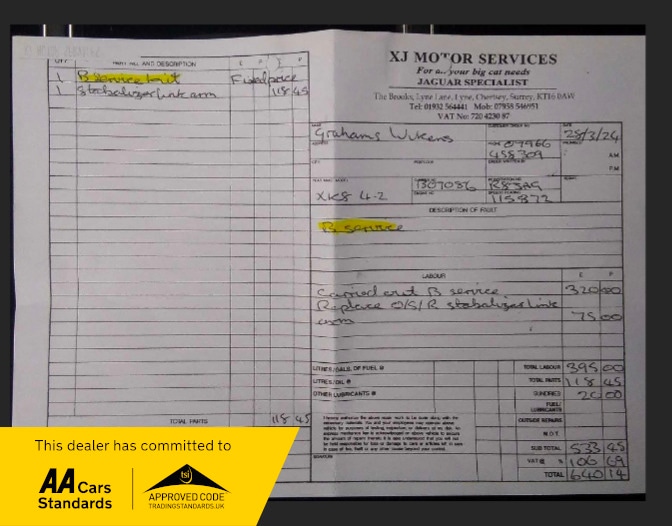 QTY. PART NO. AND DESCRIPTION £ P £ P
1 B service kit Fixed price
1 Stabalizer link arm 118 45
TOTAL PARTS 118 45
XJ MOTOR SERVICES
For all your big cat needs
JAGUAR SPECIALIST
The Brooks, Lyne Lane, Lyne, Chertsey, Surrey, KT16 0AW
Tel: 01932 564441 Mob: 07938 546951
VAT No: 720 4230 87
NAME DATE
Grahams 28/3/24
458309 A.M.
P.M.
1307086 R83JAG
XK8 4-2 115872
DESCRIPTION OF FAULT
B service
LABOUR £ P
Carried out B service 320 00
Replace O/S/R stabalizer link
arm 75 00
LITRES/GALS. OF FUEL @ TOTAL LABOUR 395 00
LITRES/OIL @ TOTAL PARTS 118 45
OTHER LUBRICANTS @ SUNDRIES 20 00
FUEL/
LUBRICANTS
OUTSIDE REPAIRS
M.O.T.
SUB TOTAL 533 45
VAT @ % 106 69
TOTAL 640 14
SIGNATURE
This dealer has committed to
AA Cars
Standards
tsi
APPROVED CODE
TRADINGSTANDARDS.UK